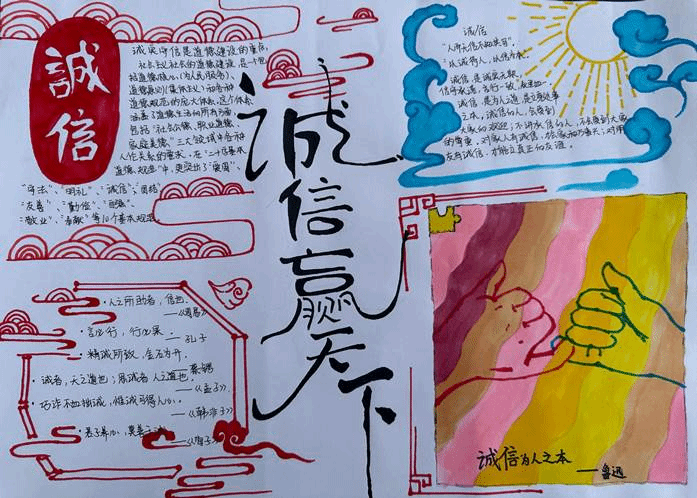 誠信
诚实守信是道德建设的重点,
社会主义社会的道德建设,是一个包
括道德核心(为人民服务)、
道德原则(集体主义)和各种
道德规范的庞大体系,这个体系
涵盖了道德生活的所有方面,
包括“社会公德、职业道德、
家庭美德”三大领域中各种
人伦关系的要求。在“二十字基本
道德规范”中,更突出了“爱国”、
“守法”、“明礼”、“诚信”、“团结”
“友善”、“勤俭”、“自强”、
“敬业”、“奉献”等10个基本规范。
诚信赢天下
诚信
“人而无信不知其可。”
“以诚待人,以信为本。”
诚信是诚实无欺,
信守承诺,言行一致,表里如一。
诚信,是为人之道,是立身处事
之本,诚信的人,会受到
大家的欢迎;不讲诚信的人,不会受到大家
的尊重。对家人有诚信,一家会和乃善天;对朋
友有诚信,才能立真正的友谊。
·人之所助者,信也。
——《周易》
·言必行,行必果。
——孔子
·精诚所致,金石为开。
——蔡锷
·诚者,天之道也;思诚者,人之道也。
——《孟子》
·巧诈不如拙诚,惟诚可得人心。
——《韩非子》
·养心,莫善于诚
——《荀子》
诚信为人之本
——鲁迅